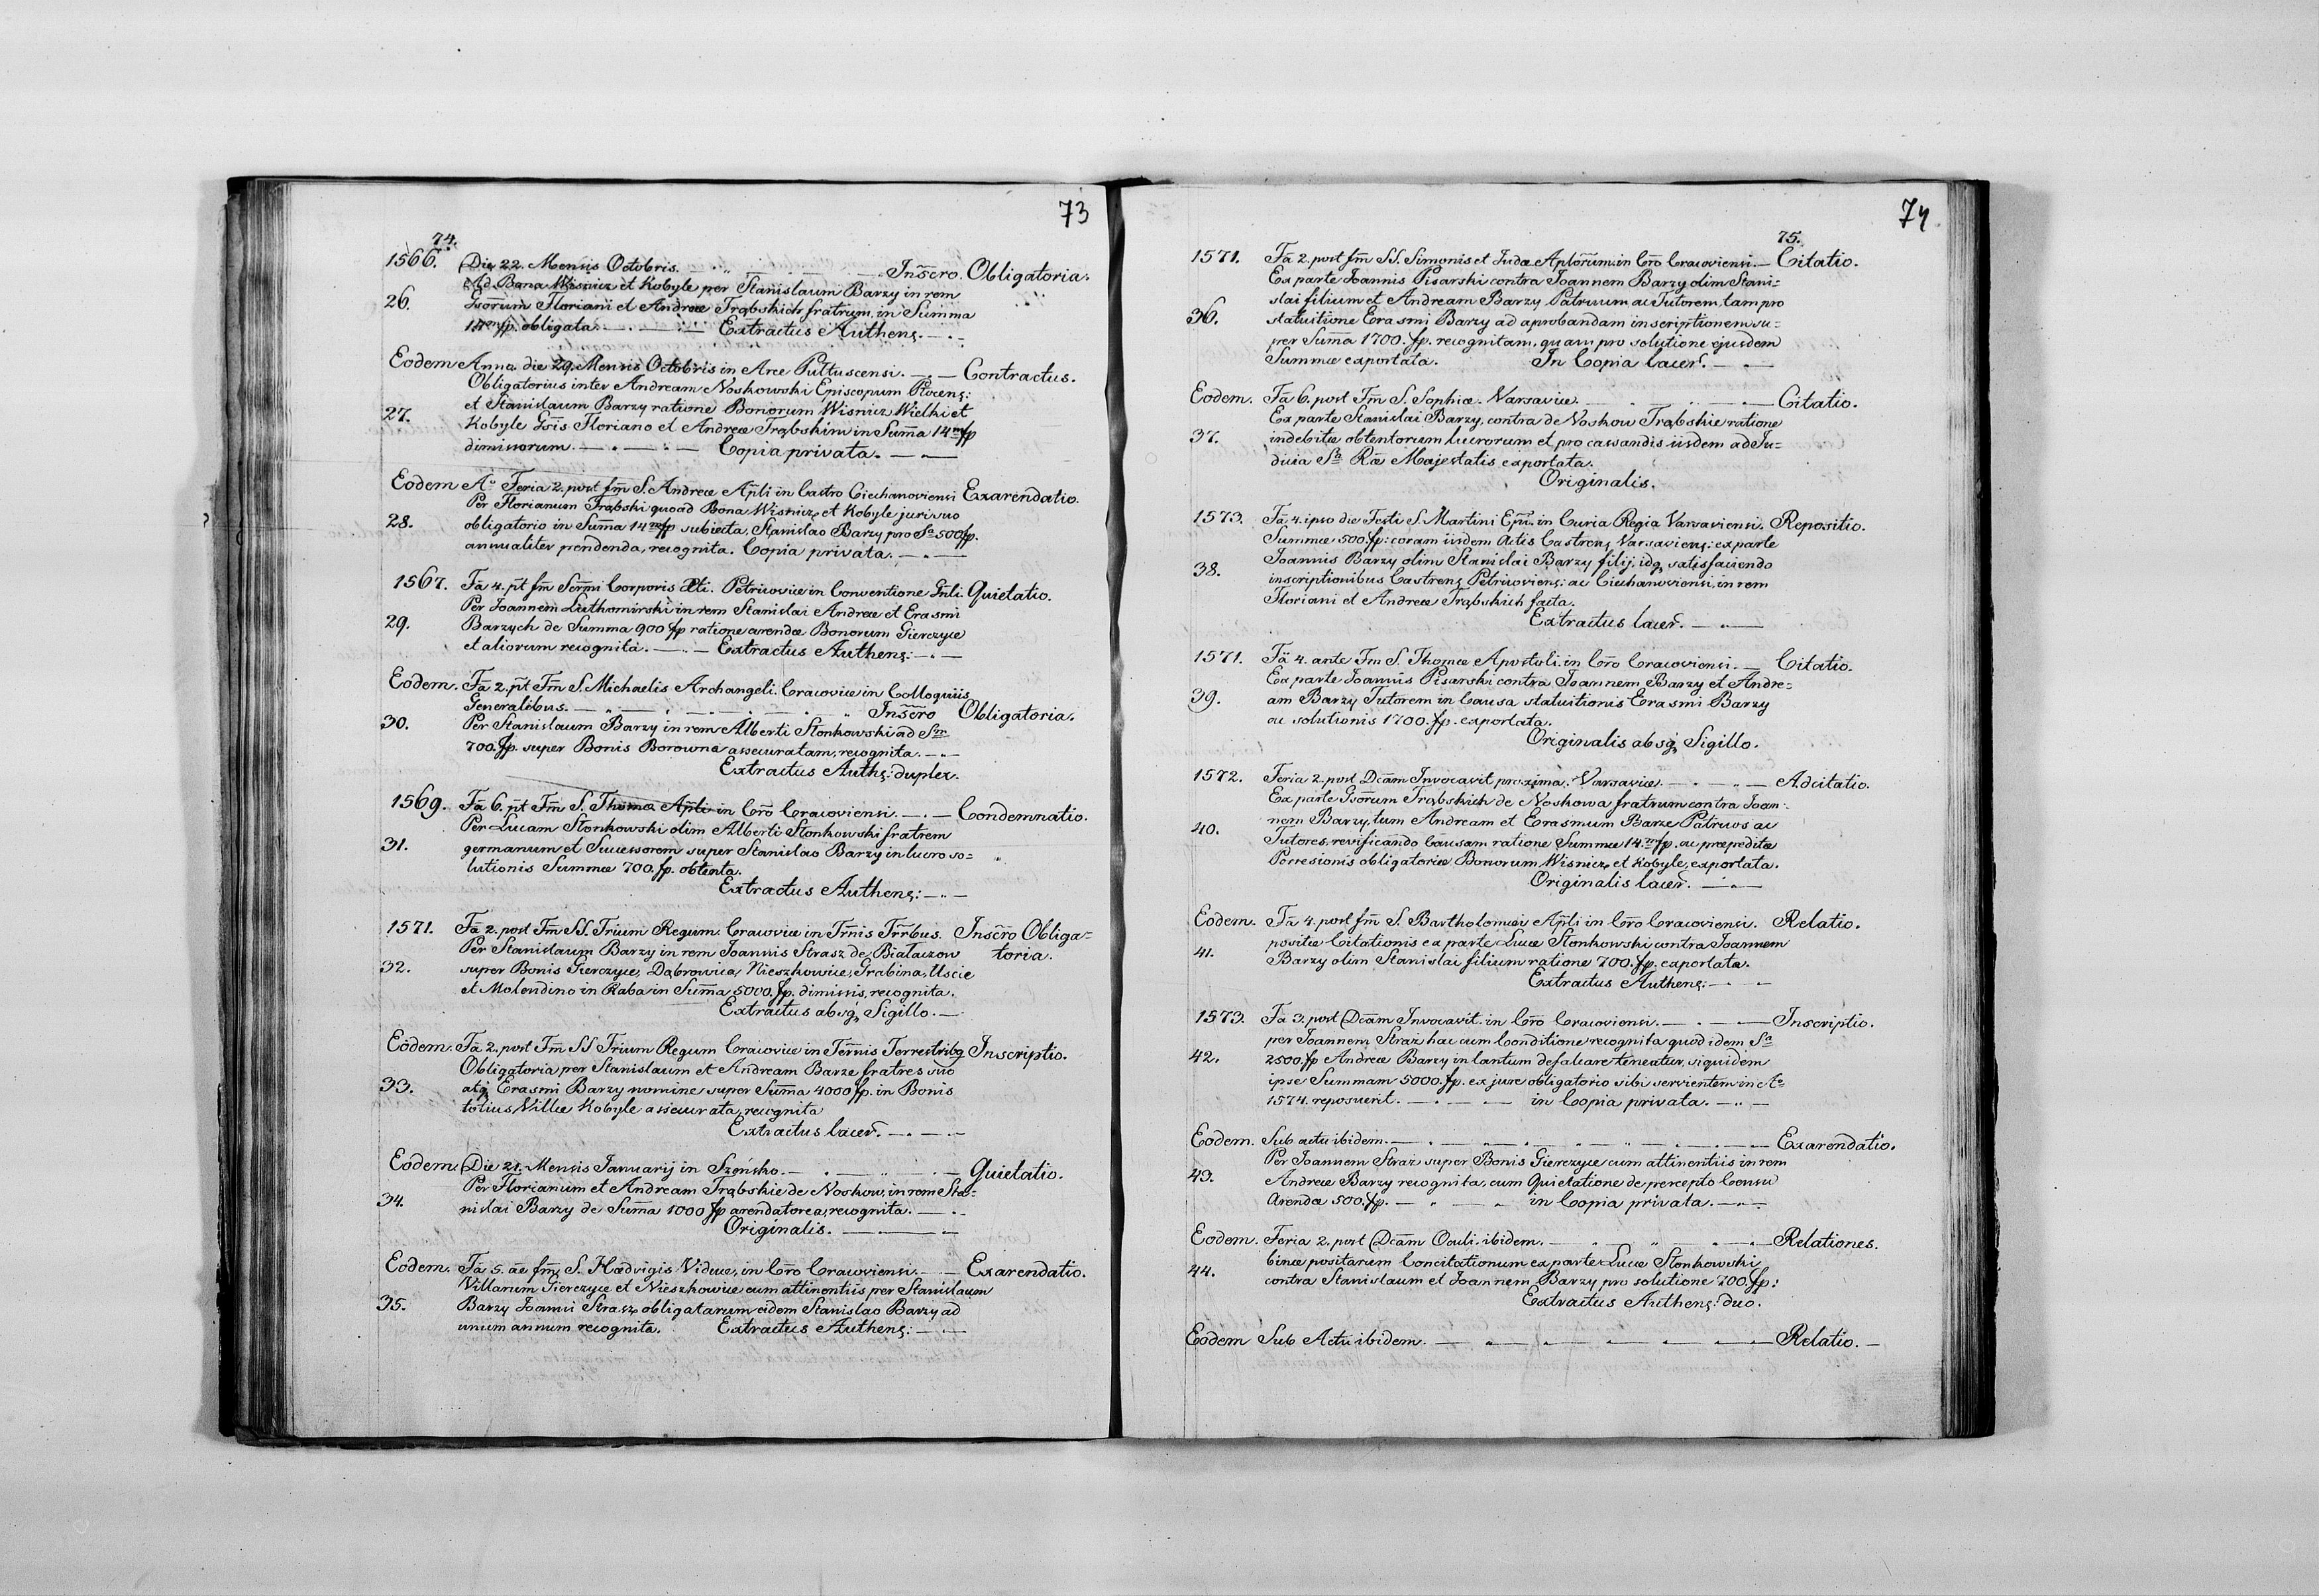 73
74.
1566. Die 22. Mensis Octobris. Inscro. Obligatoria.
Ad Bona Wisnicz et Kobyle per Stanislaum Barzy in rem
26. Gsorum Floriani et Andreæ Trąbskich fratrum, in Summa
14 m fp. obligata. Extractus Authens.
Eodem Anno die 29. Mensis Octobris in Arce Pultuscensi. Contractus.
Obligatorius inter Andream Noskowski Episcopum Plocens:
et Stanislaum Barzy ratione Bonorum Wisnicz Wielki et
27. Kobyle Gsis Floriano et Andreæ Trąbskim in Suma 14 m fp
dimissorum. Copia privata.
Eodem Ao Feria 2. post fm S. Andreæ Apli in Castro Ciechanoviensi Exarendatio.
Per Florianum Trąbski quoad Bona Wisnicz et Kobyle juri suo
28. obligatorio in Suma 14 m fp subiecta, Stanislao Barzy pro Sa 500 fp.
annualiter pendenda, recognita. Copia privata.
1567. Fa 4. pt fm Ssmi Corporis Xti. Petricoviæ in Conventione Gnli. Quietatio.
Per Joannem Luthomirski in rem Stanislai Andreæ et Erasmi
29. Barzych de Summa 900 fp ratione arendæ Bonorum Gierczyce
et aliorum recognita. Extractus Authens:
Eodem. Fa 2. pt Fm S. Michaelis Archangeli. Cracoviæ in Colloquiis
Generalibus. Inscro Obligatoria.
30. Per Stanislaum Barzy in rem Alberti Słonkowski ad Sm
700. fp. super Bonis Borowna assecuratam, recognita.
Extractus Auths: duplex.
1569. Fa 6. pt Fm S. Thomæ Apli in Cro Cracoviensi. Condemnatio.
Per Lucam Słonkowski olim Alberti Słonkowski fratrem
31. germanum et Successorem super Stanislao Barzy in lucro so=
lutionis Summæ 700. fp. obtenta.
Extractus Authens:
1571. Fa 2. post Fm SS. Trium Regum. Cracoviæ in Tmis Trrbus. Inscro Obliga=
Per Stanislaum Barzy in rem Joannis Strasz de Białaczow toria.
32. super Bonis Gierczyce, Dąbrowica, Nieszkowice, Grabina, Uscie
et Molendino in Raba in Suma 5000. fp. dimissis, recognita.
Extractus absq Sigillo.
Eodem. Fa 2. post Fm SS Trium Regum Cracoviæ in Termis Terrestribq Inscriptio.
Obligatoria per Stanislaum et Andream Barze fratres suo
33. atq Erasmi Barzy nomine super Suma 4000 fp. in Bonis
totius Villæ Kobyle assecurata, recognita
Extractus lacer.
Eodem. Die 21. Mensis Januarij in Szeńsko. Quietatio.
Per Florianum et Andream Trąbskie de Noskow, in rem Sta=
34. nislai Barzy de Suma 1000 fp arendatorea, recognita.
Originalis.
Eodem. Fa 5. ae fm S. Hædvigis Viduæ, in Cro Cracoviensi. Exarendatio.
Villarum Gierczyce et Nieszkowice cum attinentiis per Stanislaum
35. Barzy Joanni Strasz obligatarum eidem Stanislao Barzy ad
unum annum recognita. Extractus Authens:
74
75.
1571. Fa 2. post fm SS. Simonis et Judæ Aplorum. in Cro Cracoviensi. Citatio.
Ex parte Joannis Pisarski contra Joannem Barzy olim Stani=
slai filium et Andream Barzy Patruum ac Tutorem, tam pro
36. statuitione Erasmi Barzy ad aprobandam inscriptionem su=
per Suma 1700. fp. recognitam, quam pro solutione ejusdem
Summæ exportata. In Copia lacer.
Eodem. Fa 6. post Fm S. Sophiæ. Varsaviæ. Citatio.
Ex parte Stanislai Barzy, contra de Noskow Trąbskie ratione
37. indebitæ obtentorum lucrorum et pro cassandis iisdem ad Ju=
dicia Sæ Ræ Majestatis exportata.
Originalis.
1573. Fa 4. ipso die Festi S. Martini Epi. in Curia Regia Varsaviensi. Repositio.
Summæ 500. fp: coram iisdem Actis Castrens Varsaviens: ex parte
Joannis Barzy olim Stanislai Barzy filij, idq satisfaciendo
38. inscriptionibus Castrens Petricoviens: ac Ciechanoviensi, in rem
Floriani et Andreæ Trąbskich facta.
Extractus lacer.
1571. Fa 4. ante Fm S. Thomæ Apostoli. in Cro Cracoviensi. Citatio.
Ex parte Joannis Pisarski contra Joannem Barzy et Andre=
39. am Barzy Tutorem in Causa statuitionis Erasmi Barzy
ac solutionis 1700. fp. exportata.
Originalis absq Sigillo.
1572. Feria 2. post Dcam Invocavit proxima. Varsaviæ. Adcitatio.
Ex parte Gsorum Trąbskich de Noskowa fratrum contra Joan=
nem Barzy, tum Andream et Erasmum Barze Patruos ac
40. Tutores, revificando Causam ratione Summæ 14 m fp. ac præpeditæ
Possesionis obligatoriæ Bonorum Wisnicz et Kobyle, exportata.
Originalis lacer.
Eodem. Fa 4. post fm S. Bartholomæi Apli in Cro Cracoviensi. Relatio.
positæ Citationis ex parte Lucæ Słonkowski contra Joannem
41. Barzy olim Stanislai filium ratione 700. fp. exportatæ.
Extractus Authens:
1573. Fa 3. post Dcam Invocavit. in Cro Cracoviensi. Inscriptio.
per Joannem Straż hac cum Conditione recognita quod idem Sa
42. 2500. fp Andreæ Barzy in tantum defalcare teneatur, siquidem
ipse Summam 5000. fp. ex jure obligatorio sibi servientem in Ao
1574. reposuerit. in Copia privata.
Eodem. Sub actu ibidem. Exarendatio.
Per Joannem Straż super Bonis Gierczyce cum attinentiis in rem
43. Andreæ Barzy recognita, cum Quietatione de percepto Censu
Arendæ 500. fp. in Copia privata.
Eodem. Feria 2. post Dcam Oculi. ibidem. Relationes.
binæ positarum Concitationum ex parte Lucæ Słonkowski
44. contra Stanislaum et Joannem Barzy pro solutione 700. fp:
Extractus Authens: duo.
Eodem Sub Actu ibidem. Relatio.